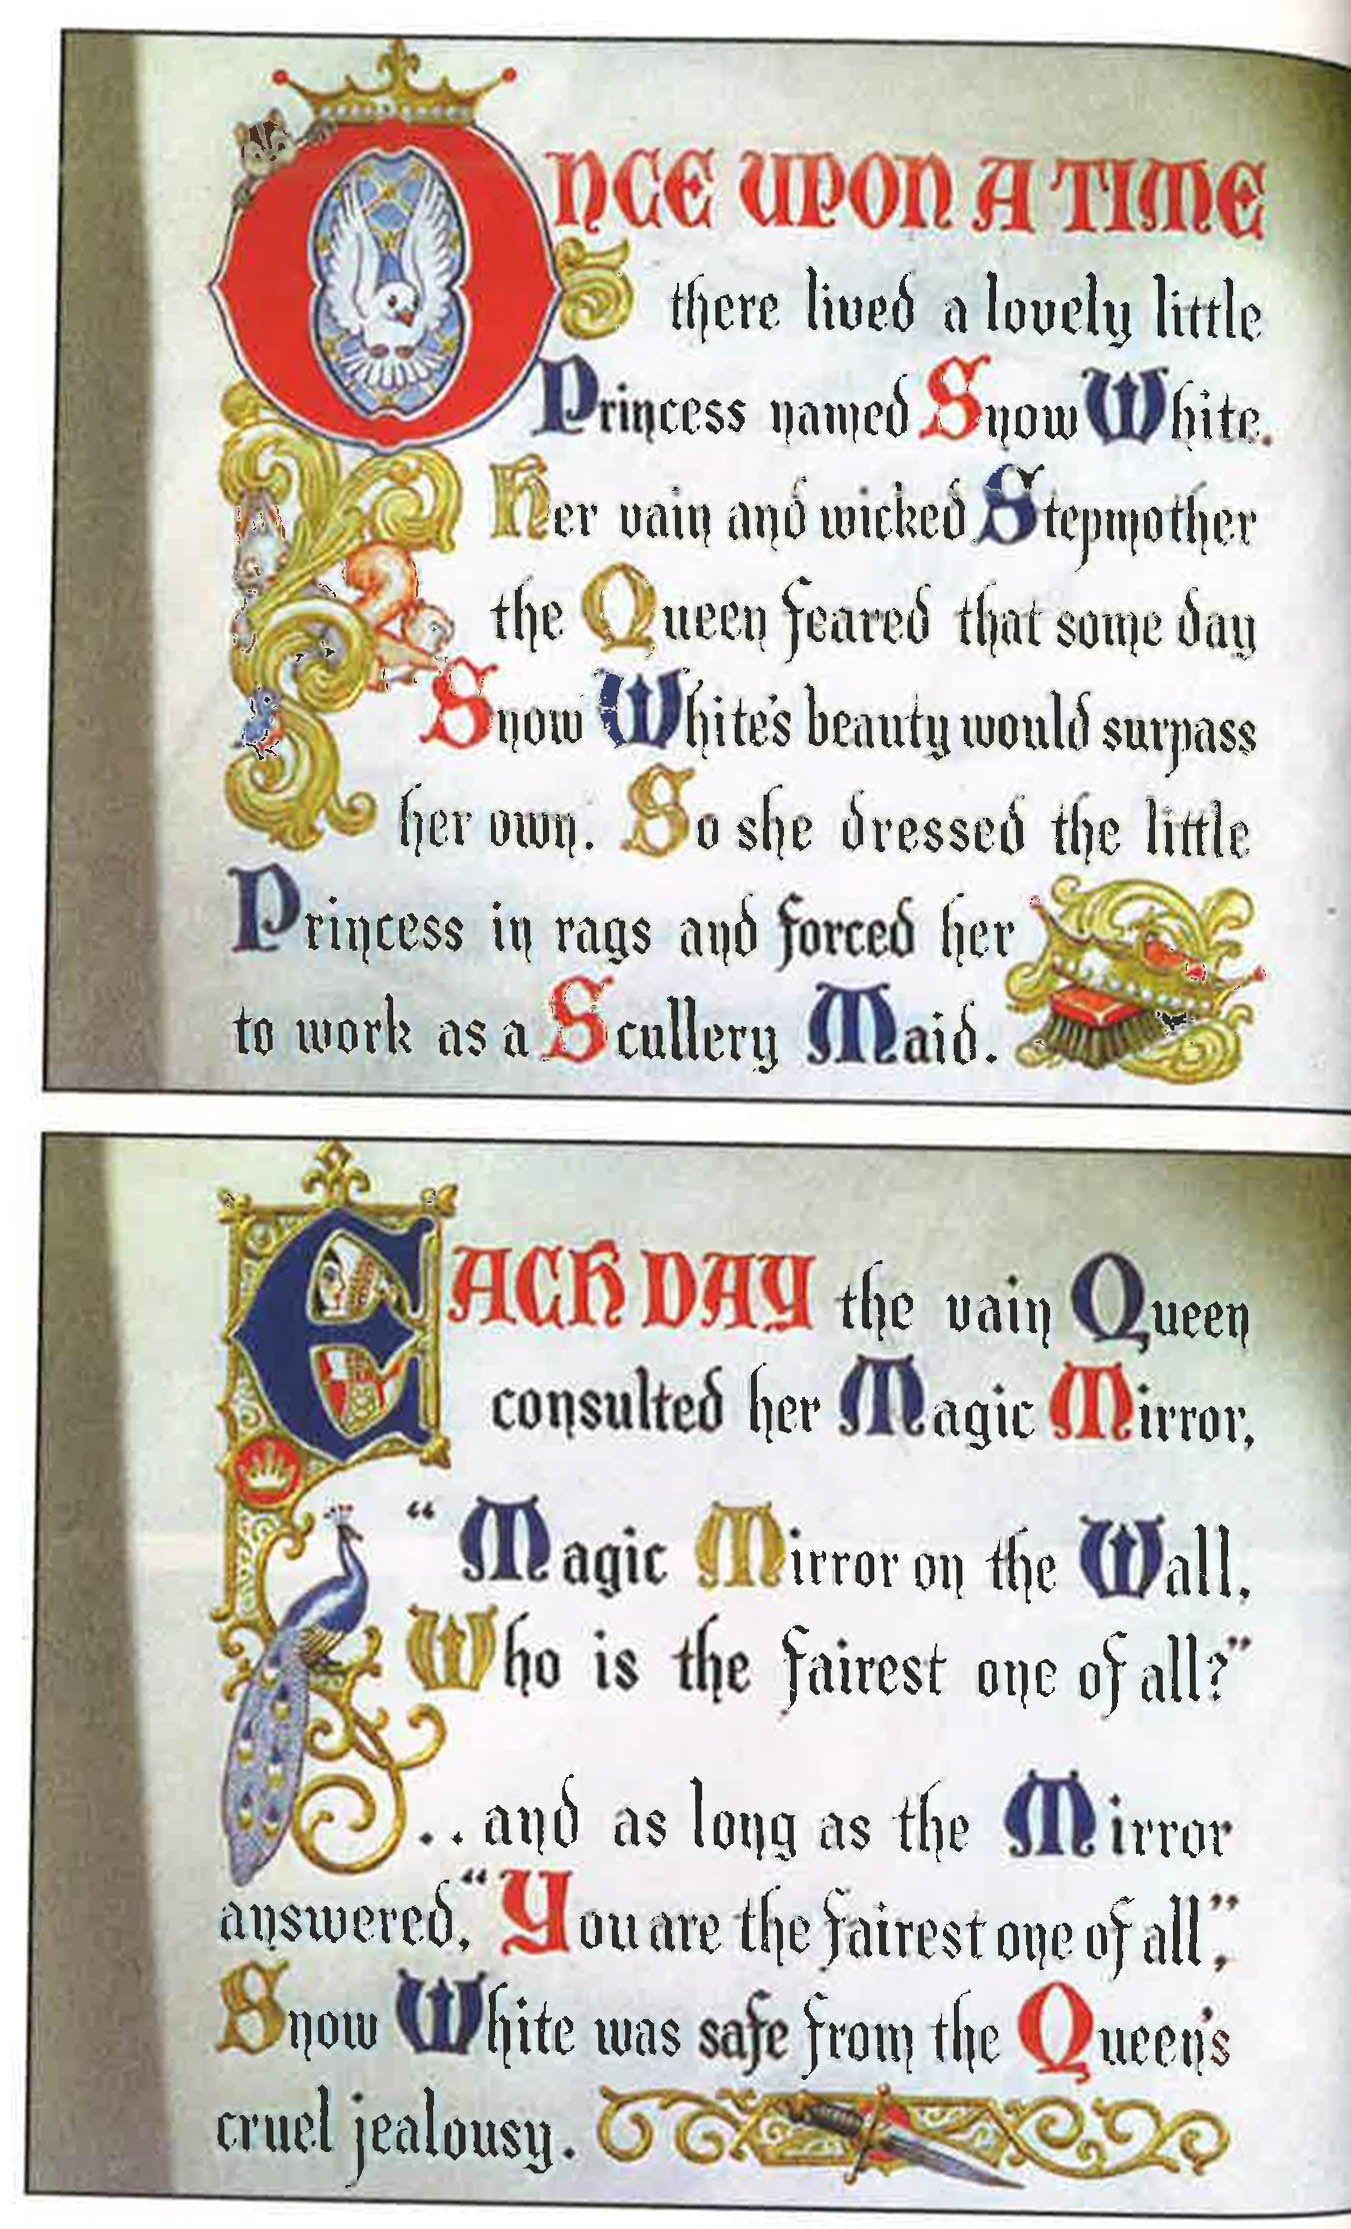 ONCE UPON A TIME
there lived a lovely little
Princess named Snow White.
Her vain and wicked Stepmother
the Queen feared that some day
Snow White's beauty would surpass
her own. So she dressed the little
Princess in rags and forced her
to work as a Scullery Maid.
EACH DAY the vain Queen
consulted her Magic Mirror,
"Magic Mirror on the Wall,
Who is the fairest one of all?"
..and as long as the Mirror
answered, "You are the fairest one of all",
Snow White was safe from the Queen's
cruel jealousy.